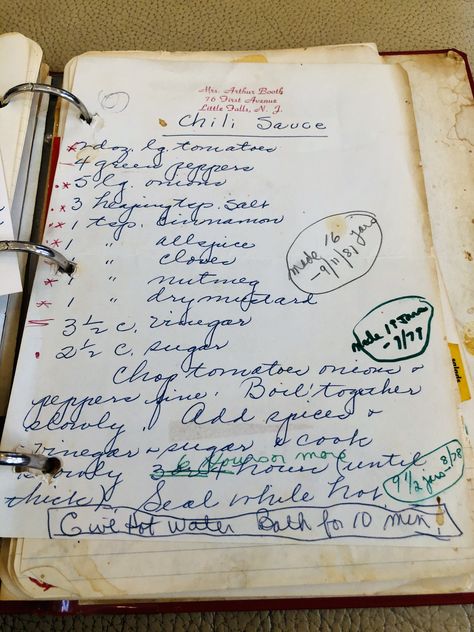 Mrs. Arthur Booth
76 First Avenue
Little Falls, N. J.
Chili Sauce
2 doz. lg. tomatoes
4 green peppers
5 lg. onions
3 heaping tsp. salt
1 tsp. cinnamon
1 " allspice
1 " cloves
1 " nutmeg
1 " dry mustard
3 1/2 c. vinegar
2 1/2 c. sugar
made 16 jars
- 9/11/81
- 9/79
Chop tomatoes onions &
peppers fine. Boil together
slowly. Add spices &
vinegar & sugar & cook
6 hours or more
slowly 3 or 4 hours (until
thick). Seal while hot.
9 1/2 jars 8/78
Give Hot Water Bath for 10 min!